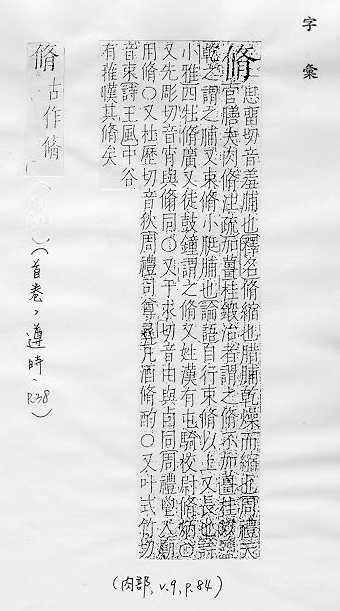 字彙
脩 思留切音羞脯也釋名脩縮也腊脯乾燥而縮也周禮天
官膳夫肉脩注疏加薑桂鍛治者謂之脩不加薑桂以鹽
乾之謂之脯又束脩小脡脯也論語自行束脩以上又長也詩
小雅四牡脩廣又徒鼓鐘謂之脩又姓漢有屯騎校尉脩炳○
又先彫切音宵與翛同○又于求切音由與卣同周禮鬯人廟
用脩○又杜歷切音狄周禮司尊彞凡酒脩酌○又叶式竹切
音束詩王風中谷
有蓷暵其脩矣
(肉部, v.9, p.84)
脩 古作
(首卷,遵時、p.38)